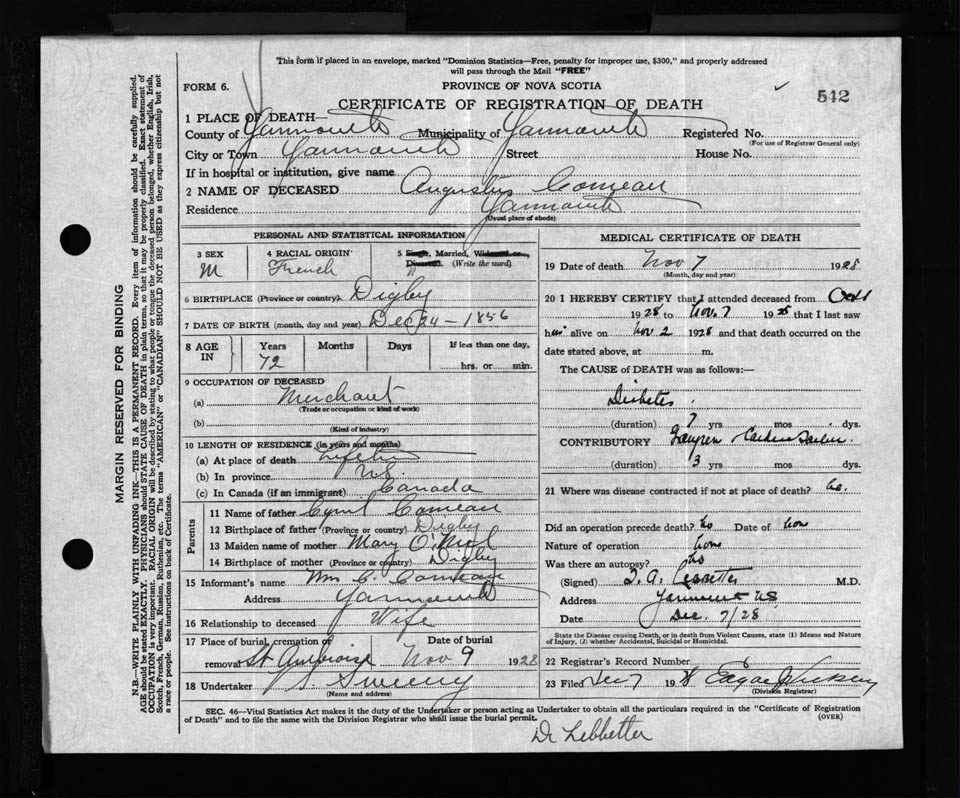 This form if placed in an envelope, marked "Dominion Statistics—Free, penalty for improper use, $300," and properly addressed
will pass through the Mail "FREE"
FORM 6. PROVINCE OF NOVA SCOTIA
542
CERTIFICATE OF REGISTRATION OF DEATH
1 PLACE OF DEATH—
County of Yarmouth Municipality of Yarmouth Registered No.
(For use of Registrar General only)
City or Town Yarmouth Street House No.
If in hospital or institution, give name
2 NAME OF DECEASED Augustus Comeau
Residence Yarmouth
(Usual place of abode)
PERSONAL AND STATISTICAL INFORMATION
3 SEX M
4 RACIAL ORIGIN French
5 Single, Married, Widowed or Divorced. (Write the word)
6 BIRTHPLACE (Province or country) Digby
7 DATE OF BIRTH (month, day and year) Dec 24 - 1856
8 AGE IN Years Months Days If less than one day,
72 hrs. or min.
9 OCCUPATION OF DECEASED
(a) Merchant
(Trade or occupation or kind of work)
(b)
(Kind of industry)
10 LENGTH OF RESIDENCE (in years and months)
(a) At place of death Lifetime
(b) In province N.S.
(c) In Canada (if an immigrant) Canada
Parents
11 Name of father Comeau
12 Birthplace of father (Province or country) Digby
13 Maiden name of mother Mary
14 Birthplace of mother (Province or country) Digby
15 Informant's name Mrs C. Comeau
Address Yarmouth
16 Relationship to deceased Wife
17 Place of burial, cremation or Date of burial
removal St Ambroise Nov 9 1928
18 Undertaker Sweeny
(Name and address)
MEDICAL CERTIFICATE OF DEATH
19 Date of death Nov 7 1928
(Month, day and year)
20 I HEREBY CERTIFY that I attended deceased from Oct
1928 to Nov. 7 1928 that I last saw
him alive on Nov 2 1928 and that death occurred on the
date stated above, at m.
The CAUSE of DEATH was as follows:—
Diabetes.
(duration) 7 yrs mos dys.
CONTRIBUTORY
(duration) 3 yrs mos dys.
21 Where was disease contracted if not at place of death?
Did an operation precede death? No Date of
Nature of operation
Was there an autopsy? No
(Signed) Lebbetter M.D.
Address Yarmouth NS
Date Dec. 7/28
State the Disease causing Death, or in death from Violent Causes, state (1) Means and Nature
of Injury, (2) whether Accidental, Suicidal or Homicidal.
22 Registrar's Record Number
23 Filed Dec 7 19 Edgar
(Division Registrar)
SEC. 46—Vital Statistics Act makes it the duty of the Undertaker or person acting as Undertaker to obtain all the particulars required in the "Certificate of Registration
of Death" and to file the same with the Division Registrar who shall issue the burial permit. (OVER)
Dr Lebbetter
MARGIN RESERVED FOR BINDING
N.B.—WRITE PLAINLY WITH UNFADING INK—THIS IS A PERMANENT RECORD. Every item of information should be carefully supplied.
AGE should be stated EXACTLY. PHYSICIANS should STATE CAUSE OF DEATH in plain terms, so that it may be properly classified. Exact statement of
OCCUPATION is very important. RACIAL ORIGIN will be described by stating to what people or tongue the deceased person belonged, whether English, Irish,
Scotch, French, German, Russian, Ruthenian, etc. The terms "AMERICAN" or "CANADIAN" SHOULD NOT BE USED as they express citizenship but not
a race or people. See instructions on back of Certificate.